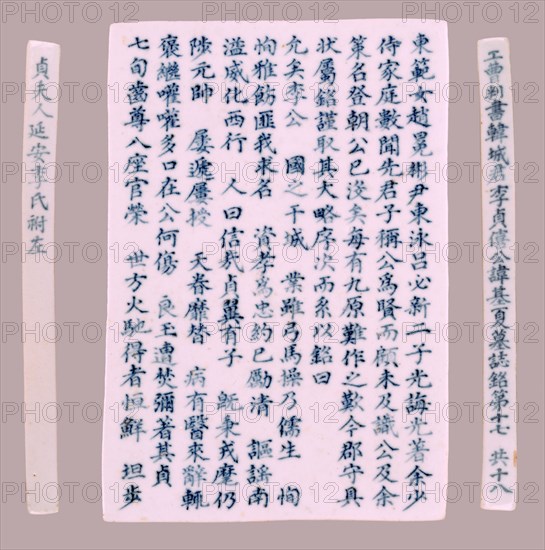 工曹判書韓城君李貞僖公諱基夏墓誌銘第十七 共十八
東範女趙冕彬尹東泳呂必新二子光誨光著余少
侍家庭數聞先君子稱公為賢而顧未及識公及余
策名登朝公已沒矣每有九原難作之歎今郡守具
狀屬銘謹取其大略序次而系以銘曰
允矣李公 國之干城 業雖弓馬操乃儒生 恂
恂雅飭匪我求名 資孝為忠約己勵清 謳謠南
溢威化西行 人曰信哉貞翼有子 旣秉戎麾仍
陟元帥 屢遞屢授 天眷靡替 病有醫來辭輒
褒繼嚾嚾多口在公何傷 良玉遭焚彌著其貞
七旬齒尊八座官榮 世方火馳得者恒鮮 坦步
貞夫人延安李氏祔左
PHOTO12